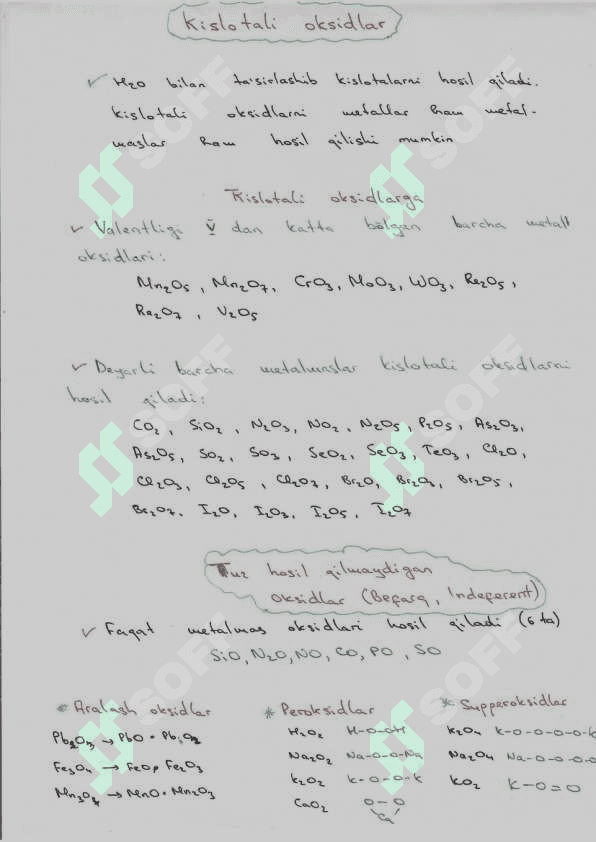 Kislotali oksidlar
✓ H2O bilan ta'sirlashib kislotalarni hosil qiladi.
kislotali oksidlarni metallar ham metal-
maslar ham hosil qilishi mumkin
Kislotali oksidlarga
✓ Valentligi V dan katta bolgan barcha metall
oksidlari:
Mn2O5, Mn2O7, CrO3, MoO3, WO3, Re2O5,
Re2O7, V2O5
✓ Deyarli barcha metalmaslar kislotali oksidlarni
hosil qiladi:
CO2, SiO2, N2O3, NO2, N2O5, P2O5, As2O3,
As2O5, SO2, SO3, SeO2, SeO3, TeO3, Cl2O,
Cl2O3, Cl2O5, Cl2O7, Br2O, Br2O3, Br2O5,
Br2O7. I2O, I2O3, I2O5, I2O7
Tuz hosil qilmaydigan
oksidlar (Befarq, Indeferent)
✓ Faqat metalmas oksidlari hosil qiladi (6 ta)
SiO, N2O, NO, CO, PO, SO
* Aralash oksidlar
* Peroksidlar
* Supperoksidlar
→ PbO •
Fe3O4 → FeO • Fe2O3
Mn3O4 → MnO • Mn2O3
H2O2 H-O-OH
Na2O2 Na-O-O-Na
K2O2 K-O-O-K
CaO2 O-O
Ca
K2O4 K-O-O-O-O-K
Na2O4 Na-O-O-O-O
KO2 K-O=O
SOFF
SOFF
SOFF
SOFF
SOFF
SOFF